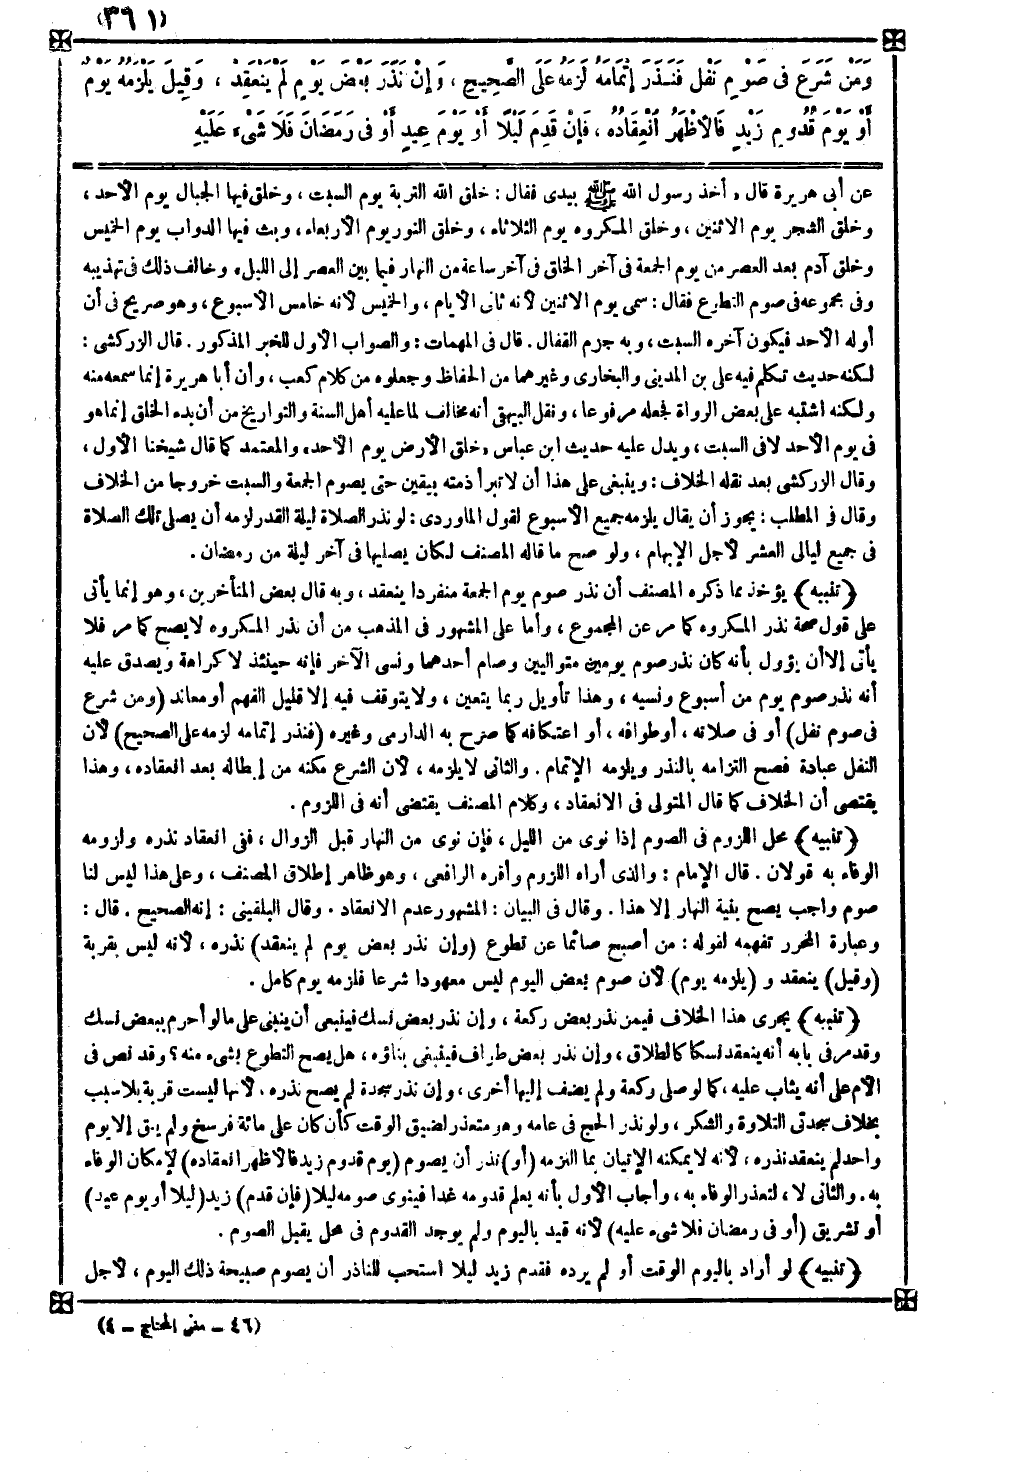 (٣٦١)
وَمَنْ شَرَعَ فى صَوْمِ نَفْلٍ فَنَذَرَ إِتْمَامَهُ لَزِمَهُ عَلَى الصَّحِيحِ ، وَإِنْ نَذَرَ بَعْضَ يَوْمٍ لَمْ يَنْعَقِدْ ، وَقِيلَ يَلْزَمُهُ يَوْمٌ
أَوْ يَوْمَ قُدُومِ زَيْدٍ فَالْأَظْهَرُ انْعِقَادُهُ ، فَإِنْ قَدِمَ لَيْلًا أَوْ يَوْمَ عِيدٍ أَوْ فى رَمَضَانَ فَلَا شَىْءَ عَلَيْهِ
عن أبى هريرة قال « أخذ رسول الله ﷺ بيدى فقال : خلق الله التربة يوم السبت ، وخلق فيها الجبال يوم الأحد ،
وخلق الشجر يوم الاثنين ، وخلق المكروه يوم الثلاثاء ، وخلق النور يوم الأربعاء ، وبث فيها الدواب يوم الخميس
وخلق آدم بعد العصر من يوم الجمعة فى آخر الخلق فى آخر ساعة من النهار فيما بين العصر إلى الليل » وخالف ذلك فى تهذيبه
وفى مجموعه فى صوم التطوع فقال : سمى يوم الاثنين لأنه ثانى الأيام ، والخميس لأنه خامس الأسبوع ، وهو صريح فى أن
أوله الأحد فيكون آخره السبت ، وبه جزم القفال . قال فى المهمات : والصواب الأول للخبر المذكور . قال الزركشى :
لكنه حديث تكلم فيه على بن المدينى والبخارى وغيرهما من الحفاظ وجعلوه من كلام كعب ، وأن أبا هريرة إنما سمعه منه
ولكنه اشتبه على بعض الرواة لجعله مرفوعا ، ونقل البيهقى أنه مخالف لما عليه أهل السنة والتواريخ من أن بدء الخلق إنما هو
فى يوم الأحد لا فى السبت ، ويدل عليه حديث ابن عباس « خلق الأرض يوم الأحد » والمعتمد كما قال شيخنا الأول ،
وقال الزركشى بعد نقله الخلاف : وينبغى على هذا أن لا تبرأ ذمته بيقين حتى يصوم الجمعة والسبت خروجا من الخلاف
وقال فى المطلب : يجوز أن يقال يلزمه جميع الأسبوع لقول الماوردى : لو نذر الصلاة ليلة القدر لزمه أن يصلى تلك الصلاة
فى جميع ليالى العشر لأجل الإبهام ، ولو صح ما قاله المصنف لكان يصليها فى آخر ليلة من رمضان .
﴿ تنبيه ﴾ يؤخذ مما ذكره المصنف أن نذر صوم يوم الجمعة منفردا ينعقد ، وبه قال بعض المتأخرين ، وهو إنما يأتى
على قول صحة نذر المكروه كما مر عن المجموع ، وأما على المشهور فى المذهب من أن نذر المكروه لا يصح كما مر فلا
يأتى إلا أن يؤول بأنه كان نذر صوم يومين متواليين وصام أحدهما ونسى الآخر فإنه حينئذ لا كراهة ويصدق عليه
أنه نذر صوم يوم من أسبوع ونسيه ، وهذا تأويل ربما يتعين ، ولا يتوقف فيه إلا قليل الفهم أو معاند (ومن شرع
فى صوم نفل) أو فى صلاته ، أو طوافه ، أو اعتكافه كما صرح به الدارمى وغيره (فنذر إتمامه لزمه على الصحيح) لأن
النفل عبادة فصح التزامه بالنذر ويلزمه الإتمام . والثانى لا يلزمه ، لأن الشرع مكنه من إبطاله بعد انعقاده ، وهذا
يقتضى أن الخلاف كما قال المتولى فى الانعقاد ، وكلام المصنف يقتضى أنه فى اللزوم .
﴿ تنبيه ﴾ محل اللزوم فى الصوم إذا نوى من الليل ، فإن نوى من النهار قبل الزوال ، ففى انعقاد نذره ولزومه
الوفاء به قولان . قال الإمام : والذى أراه اللزوم وأقره الرافعى ، وهو ظاهر إطلاق المصنف ، وعلى هذا ليس لنا
صوم واجب يصح بنية النهار إلا هذا . وقال فى البيان : المشهور عدم الانعقاد . وقال البلقينى : إنه الصحيح . قال :
وعبارة المحرر تفهمه لقوله : من أصبح صائما عن تطوع (وإن نذر بعض يوم لم ينعقد) نذره ، لأنه ليس بقربة
(وقيل) ينعقد و (يلزمه يوم) لأن صوم بعض اليوم ليس معهودا شرعا فلزمه يوم كامل .
﴿ تنبيه ﴾ يجرى هذا الخلاف فيمن نذر بعض ركعة ، وإن نذر بعض نسك فينبغى أن ينبنى على ما لو أحرم ببعض نسك
وقد مر فى بابه أنه ينعقد نسكا كالطلاق ، وإن نذر بعض طواف فينبغى بناؤه ، هل يصح التطوع بشىء منه ؟ وقد نص فى
الأم على أنه يثاب عليه ، كما لو صلى ركعة ولم يضف إليها أخرى ، وإن نذر سجدة لم يصح نذره ، لأنها ليست قربة بلا سبب
بخلاف سجدتى التلاوة والشكر ، ولو نذر الحج فى عامه وهو متعذر لضيق الوقت كأن كان على مائة فرسخ ولم يبق إلا يوم
واحد لم ينعقد نذره ، لأنه لا يمكنه الإتيان بما التزمه (أو) نذر أن يصوم (يوم قدوم زيد فالأظهر انعقاده) لإمكان الوفاء
به . والثانى لا ، لتعذر الوفاء به ، وأجاب الأول بأنه يعلم قدومه غدا فينوى صومه ليلا (فإن قدم) زيد (ليلا أو يوم عيد)
أو تشريق (أو فى رمضان فلا شىء عليه) لأنه قيد باليوم ولم يوجد القدوم فى محل يقبل الصوم .
﴿ تنبيه ﴾ لو أراد باليوم الوقت أو لم يرده فقدم زيد ليلا استحب للناذر أن يصوم صبيحة ذلك اليوم ، لأجل
(٤٦ – مغنى المحتاج – ٤)